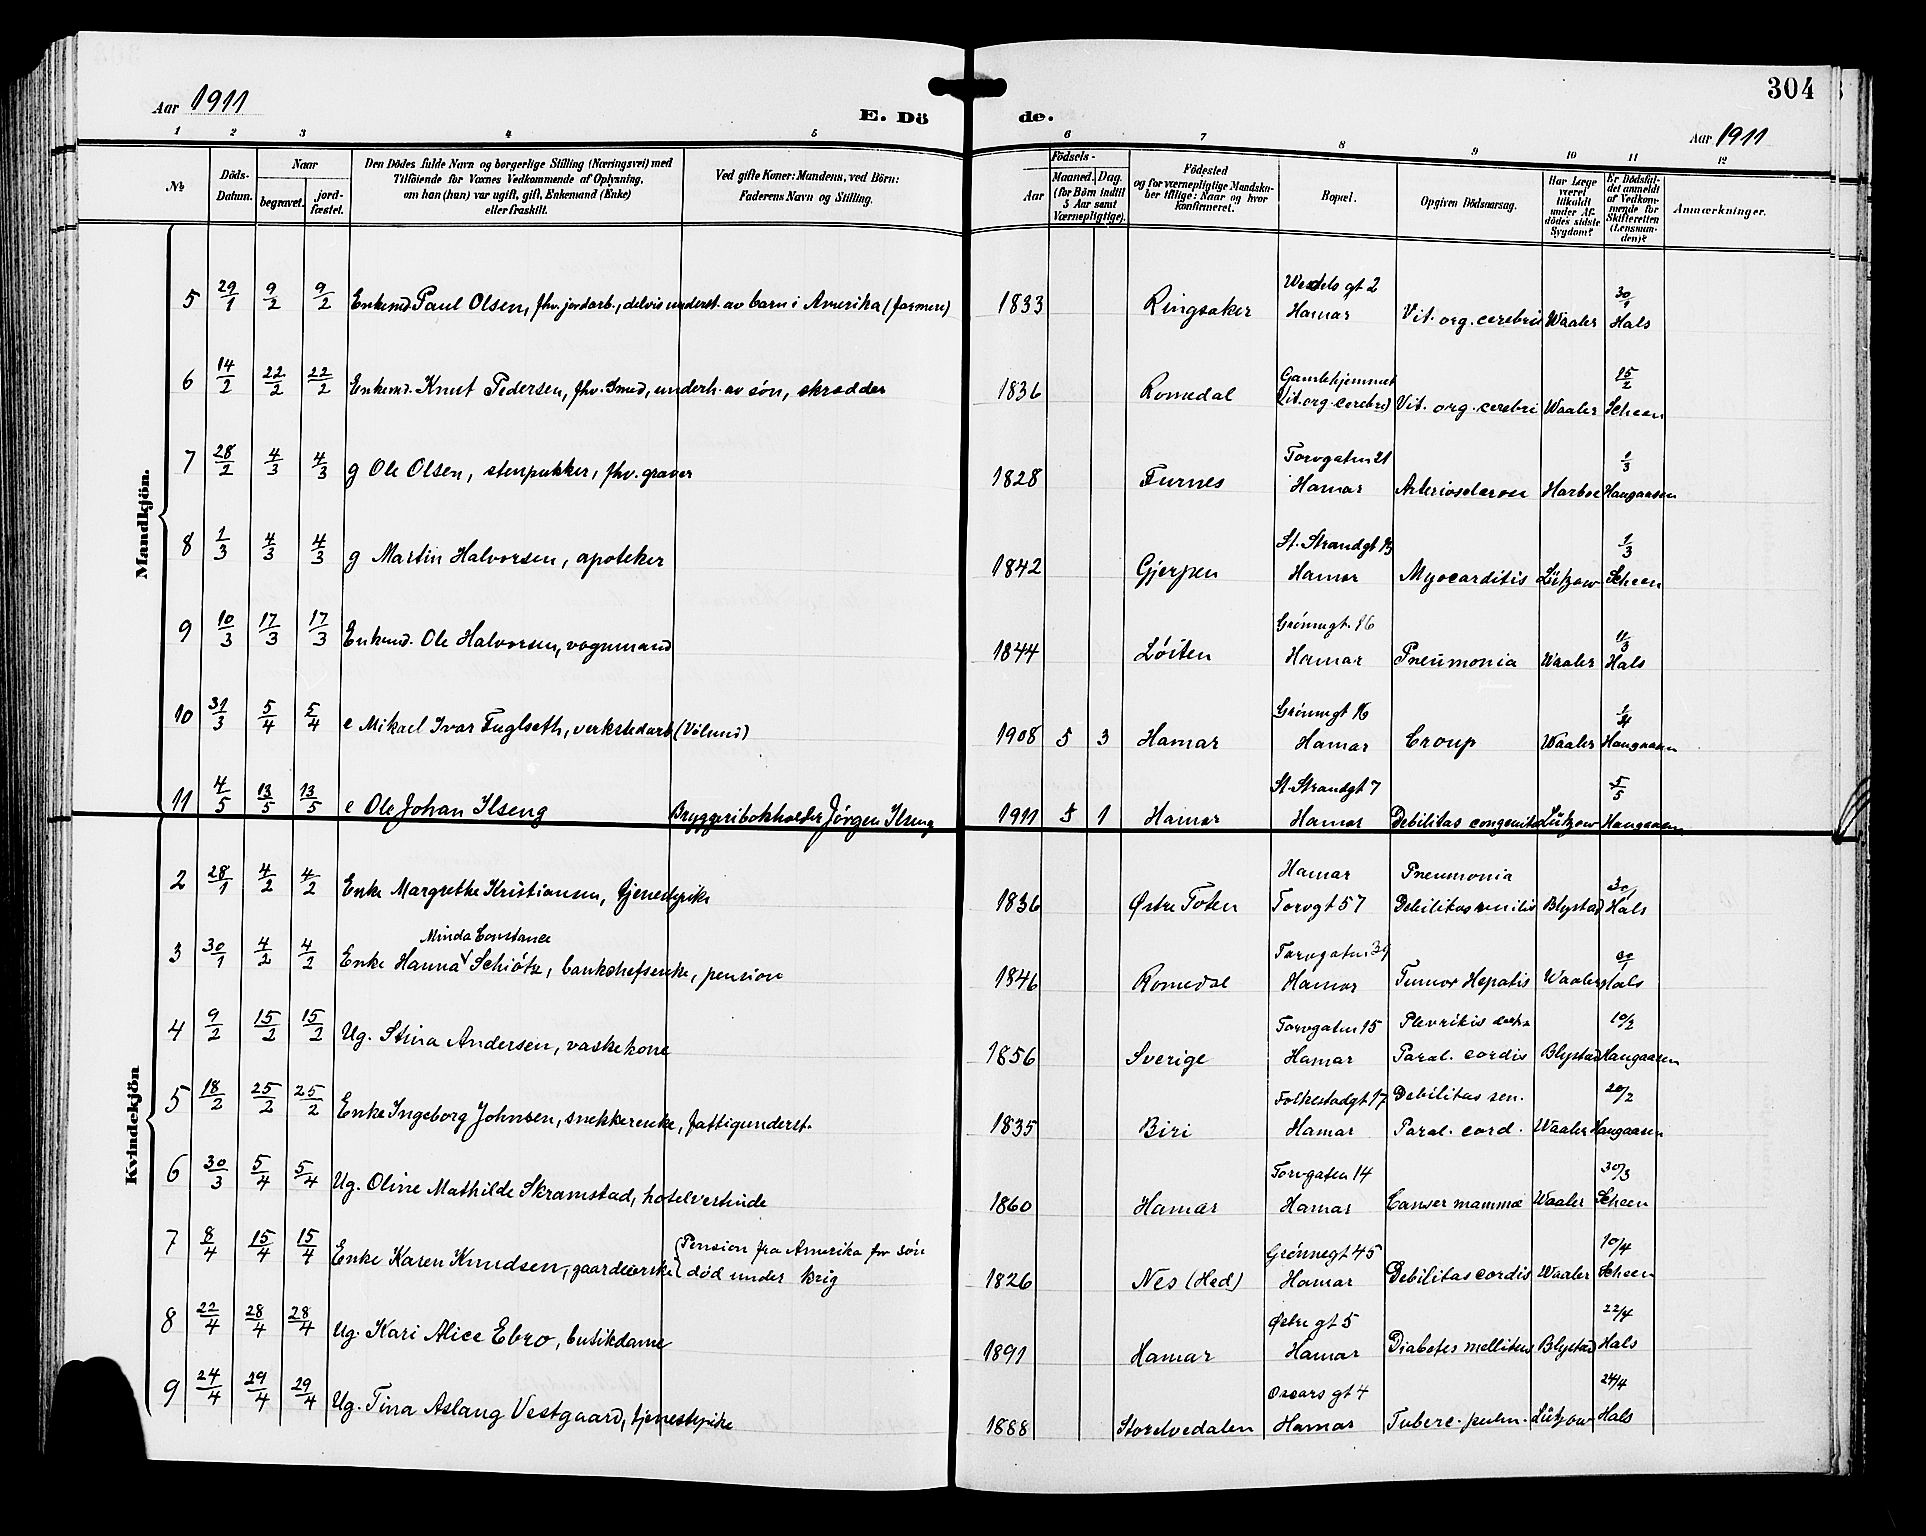 304
Aar 1911
E. Dö de.
Aar 1911
1 2 3 4 5 6 7 8 9 10 11 12
№
Döds-Datum.
Naar
begravet.
jord-fæstet.
Den Dödes fulde Navn og borgerlige Stilling (Næringsvei) med
Tilföiende for Voxnes Vedkommende af Oplysning,
om han (hun) var ugift, gift, Enkemand (Enke)
eller fraskilt.
Ved gifte Koner: Mandens, ved Börn:
Faderens Navn og Stilling.
Födsels-
Aar
Maaned. Dag.
(for Börn indtil
5 Aar samt
Værnepligtige).
Födested
og for værnepligtige Mandska-
ber tillige: Naar og hvor
konfirmeret.
Bopæl.
Opgiven Dödsaarsag.
Har Læge
været
tilkaldt
under Af-
dödes sidste
Sygdom?
Er Dödsfal-
det anmeldt
af Vedkom-
mende for
Skifteretten
(Lensman-
den)?
Anmærkninger.
Mandkjön.
5 29/1 9/2 9/2 Enkemd. Paul Olsen, fhv. jordarb., delvis underst. av barn i Amerika (farmere) 1833 Ringsaker Wedels gt 2 Hamar Vit. org. cerebri Waaler 30/1 Hals
6 14/2 22/2 22/2 Enkemd. Knut Pedersen, fhv. Smed, underh. av søn, skrædder 1836 Romedal Gamlehjemmet (Vit. org. cerebri) Vit. org. cerebri Waaler 15/2 Scheen
7 28/2 4/3 4/3 g Ole Olsen, stenpukker, fhv. graver 1828 Furnes Torvgaten 21 Hamar Arteriosclerose Harboe 1/3 Haugaasen
8 1/3 4/3 4/3 g Martin Halvorsen, apoteker 1842 Gjerpen St. Strandgt 13 Hamar Myocarditis Lützow 1/3 Scheen
9 10/3 17/3 17/3 Enkemd. Ole Halvorsen, vognmand 1844 Løiten Grønnegt. 86 Hamar Pneumonia Waaler 11/3 Hals
10 31/3 5/4 5/4 e Mikael Ivar Fuglseth, verkstedarb (Vølund) 1908 5 3 Hamar Grønnegt 16 Hamar Croup Waaler 1/4 Haugaasen
11 4/5 13/5 13/5 e Ole Johan Ilseng Bryggeribokholder Jörgen Ilseng 1911 5 1 Hamar St. Strandgt 7 Hamar Debilitas congenita Lützow 5/5 Haugaasen
Kvindekjön
2 28/1 4/2 4/2 Enke Margrethe Kristiansen, tjenestepike 1836 Østre Toten Hamar Torvgt 57 Pneumonia Debilitas senilis Blystad 30/1 Hals
Minda Constance
3 30/1 4/2 4/2 Enke Hanna Schiøtz, bankchefsenke, pension 1846 Romedal Torvgaten 39 Hamar Tumor Hepatis Waaler 30/1 Hals
4 9/2 15/2 15/2 Ug. Stina Andersen, vaskekone 1856 Sverige Torvgaten 15 Hamar Plevritis dextra Paral. cordis Blystad 10/2 Haugaasen
5 18/2 25/2 25/2 Enke Ingeborg Johnsen, snekkerenke, fattigunderst. 1835 Biri Folkestadgt 17 Hamar Debilitas sen. Paral. cord. Waaler 20/2 Haugaasen
6 30/3 5/4 5/4 Ug. Oline Mathilde Skramstad, hotelvertinde 1860 Hamar Torvgaten 14 Hamar Canser mammæ Waaler 30/3 Scheen
7 8/4 15/4 15/4 Enke Karen Knudsen, gaardeierske (Pension fra Amerika for søn død under krig 1826 Nes (Hed) Grønnegt 45 Hamar Debilitas cordis Waaler 10/4 Scheen
8 22/4 28/4 28/4 Ug. Kari Alice Ebro, butikdame 1891 Hamar Østre gt 5 Hamar Diabetes mellitus Blystad 22/4 Hals
9 24/4 29/4 29/4 Ug. Tina Aslaug Vestgaard, tjenestepike 1888 Storelvedalen Oscars gt 4 Hamar Tuberc. pulm. Lützow 24/4 Hals